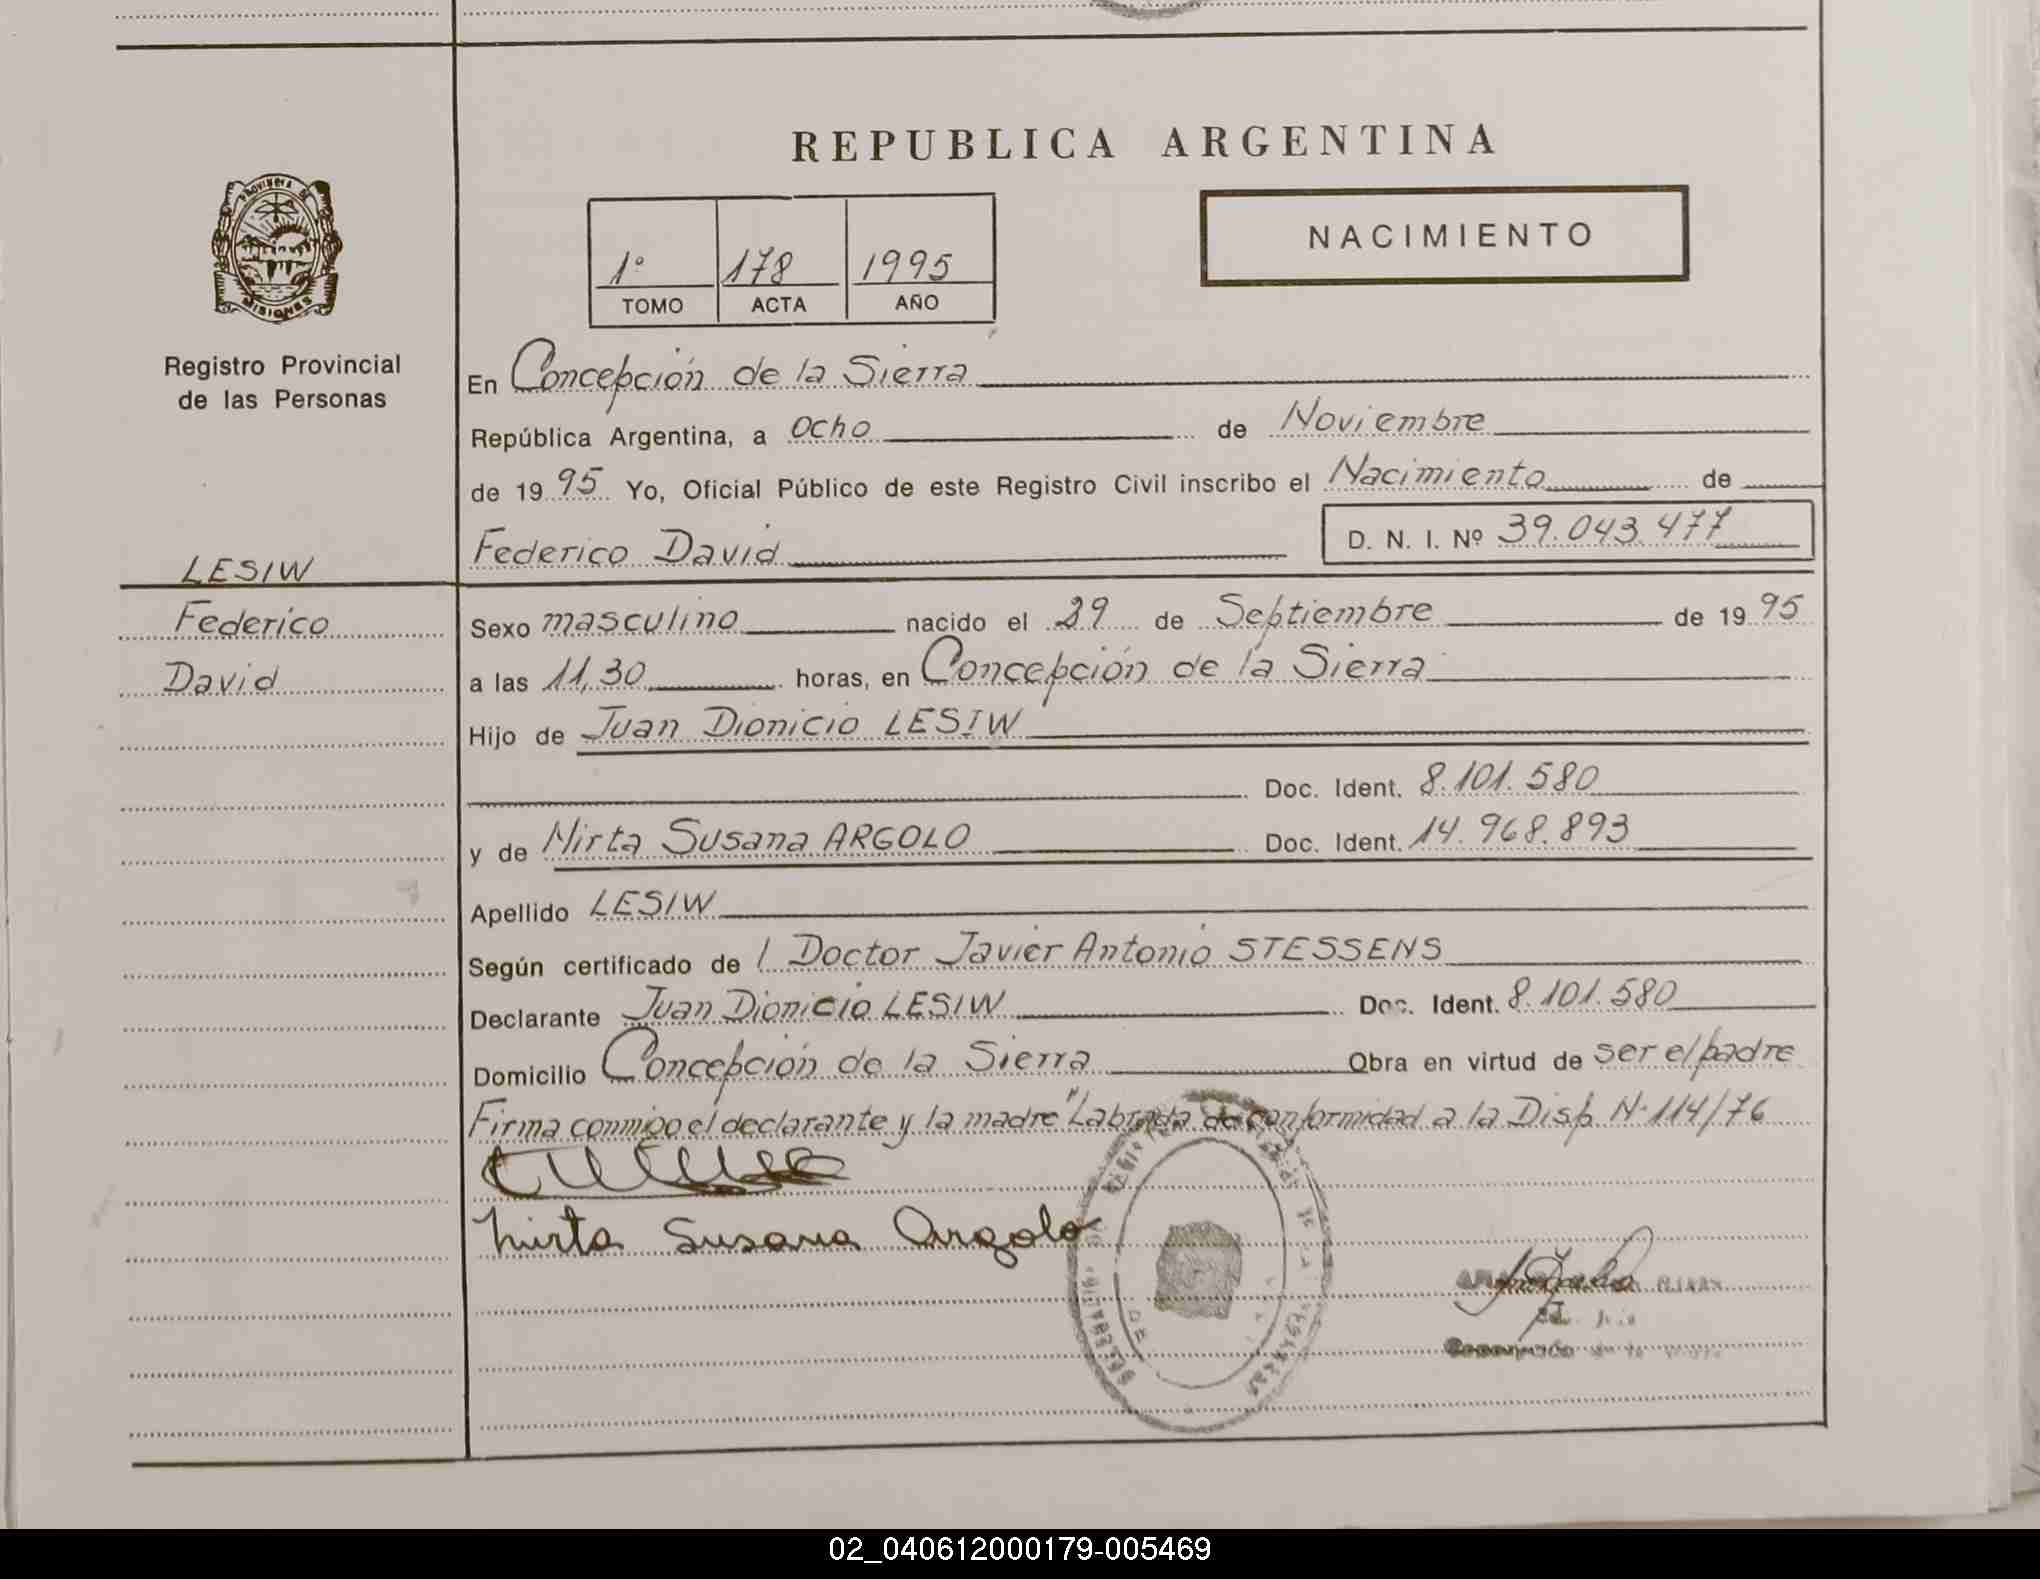 REPUBLICA ARGENTINA
PROVINCIA DE
MISIONES
Registro Provincial
de las Personas
NACIMIENTO
1° 178 1995
TOMO ACTA AÑO
En Concepción de la Sierra
República Argentina, a ocho de Noviembre
de 1995 Yo, Oficial Público de este Registro Civil inscribo el Nacimiento de
Federico David D. N. I. Nº 39.043.477
LESIW
Federico
David
Sexo masculino nacido el 29 de Septiembre de 1995
a las 11,30 horas, en Concepción de la Sierra
Hijo de Juan Dionicio LESIW
Doc. Ident. 8.101.580
y de Mirta Susana ARGOLO Doc. Ident. 14.968.893
Apellido LESIW
Según certificado de l Doctor Javier Antonio STESSENS
Declarante Juan Dionicio LESIW Doc. Ident. 8.101.580
Domicilio Concepción de la Sierra Obra en virtud de ser el padre
Firma conmigo el declarante y la madre "Labrada de conformidad a la Disp. N° 114/76
Mirta Susana Argolo
02_040612000179-005469